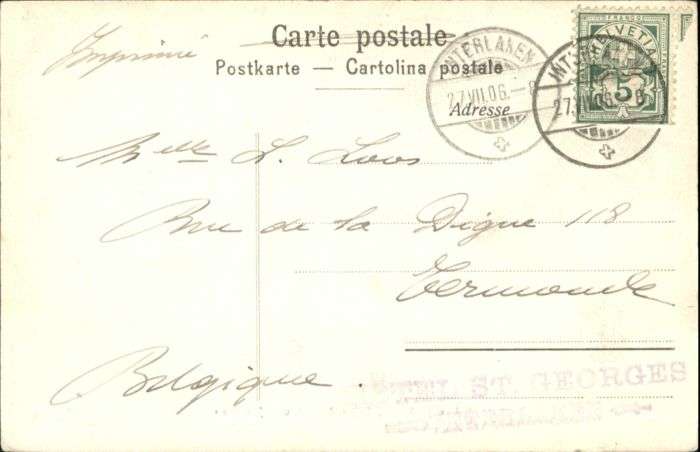 Carte postale
Imprimé
Postkarte — Cartolina postale
Adresse
FRANCO
HELVETIA
5
INTERLAKEN
27.VII.06.
INTERLAKEN
27.VII.06.
Melle L. Loos
Rue de la Digue 118
Termonde
Belgique.
HOTEL ST. GEORGES
INTERLAKEN